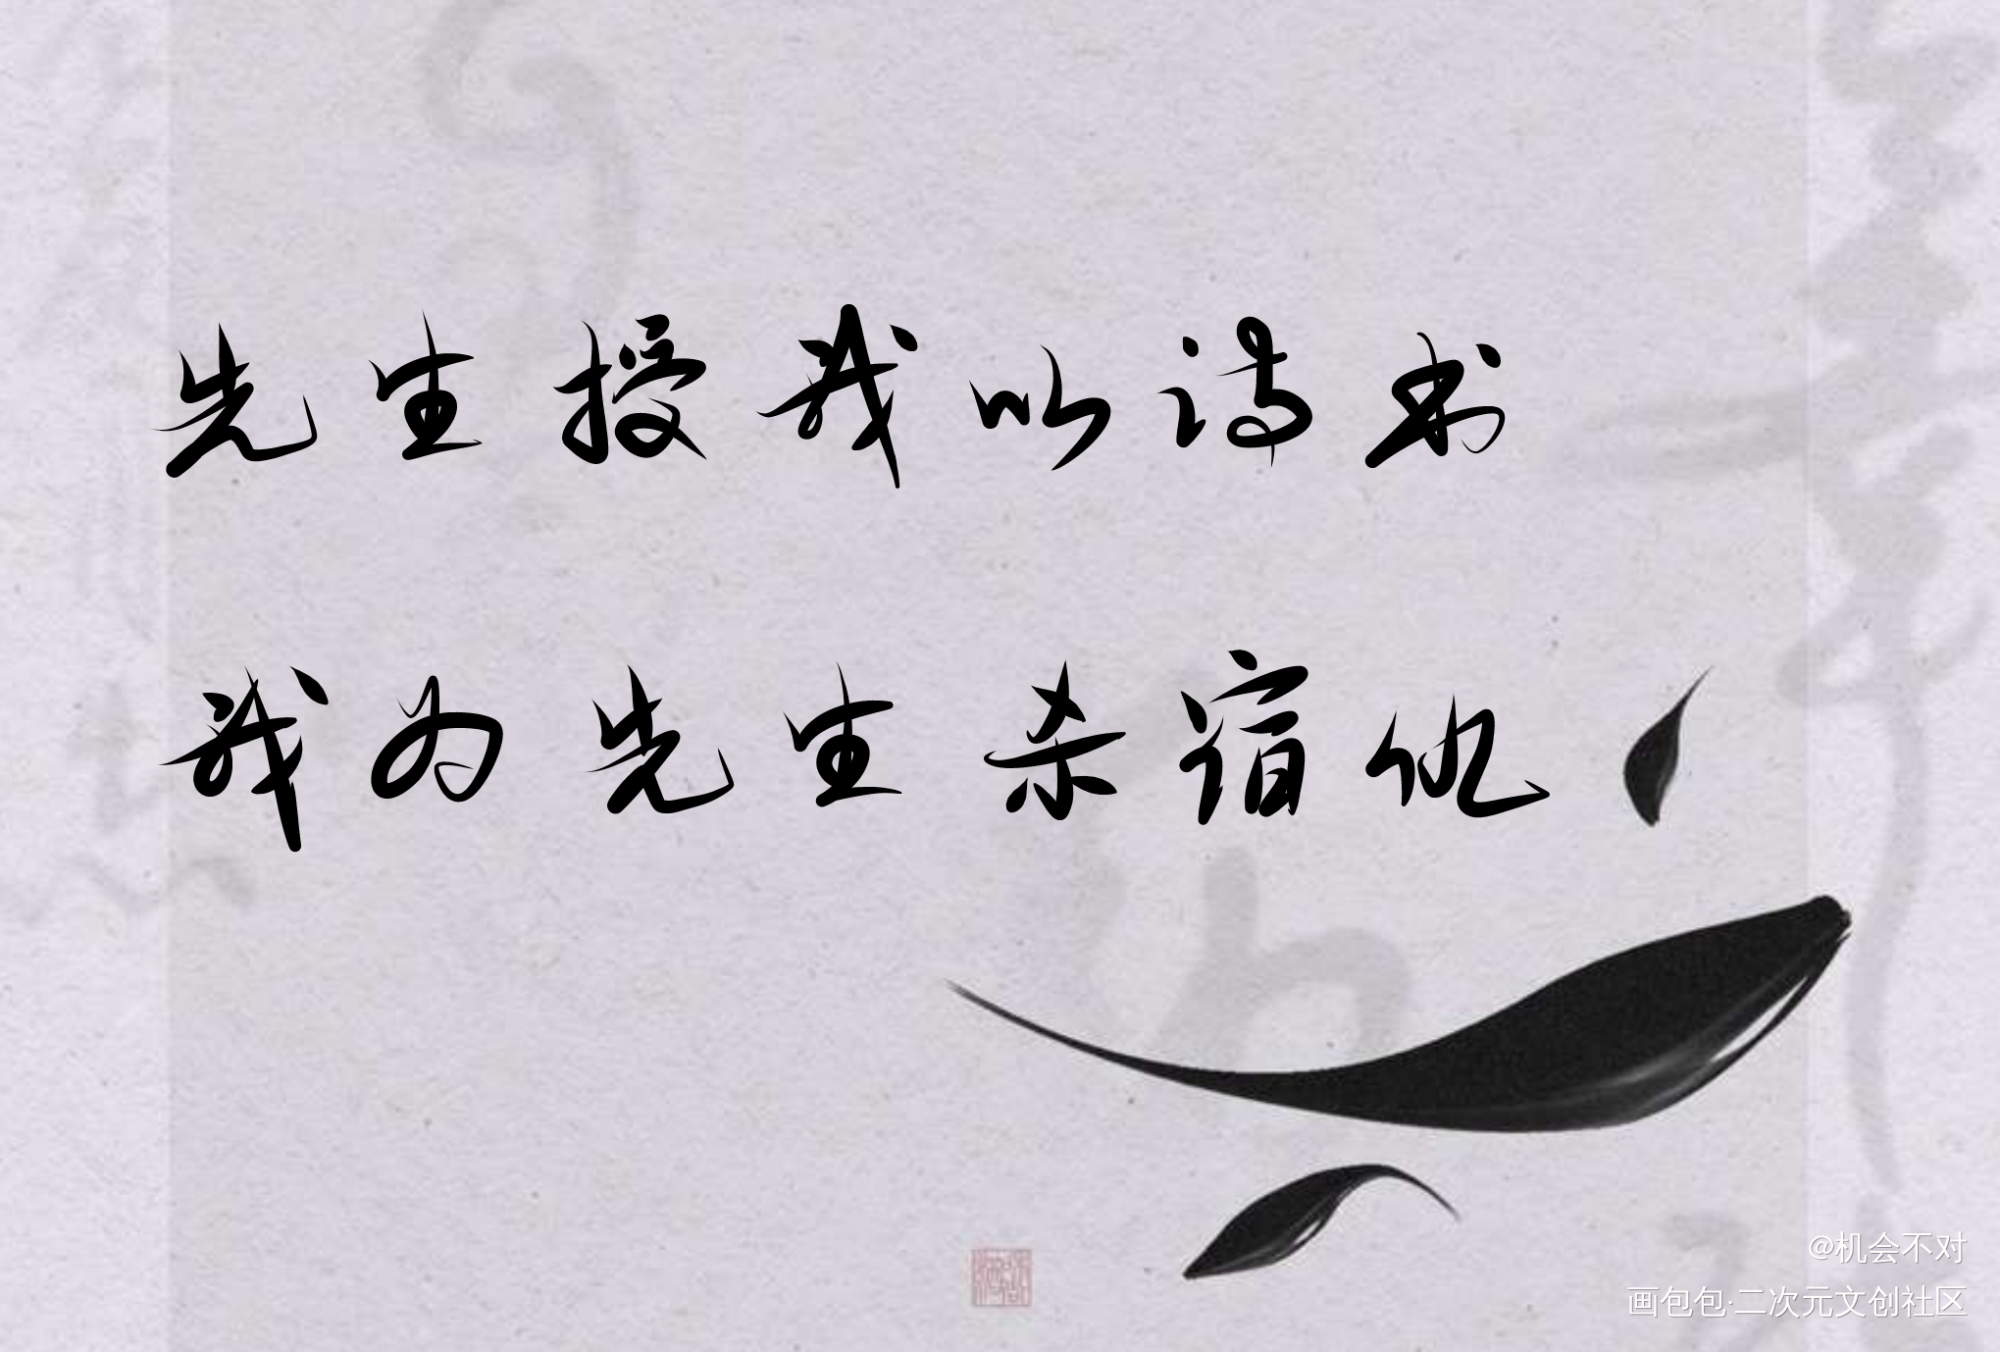 先生授我以诗书
我为先生杀宿仇
@机会不对
画包包·二次元文创社区